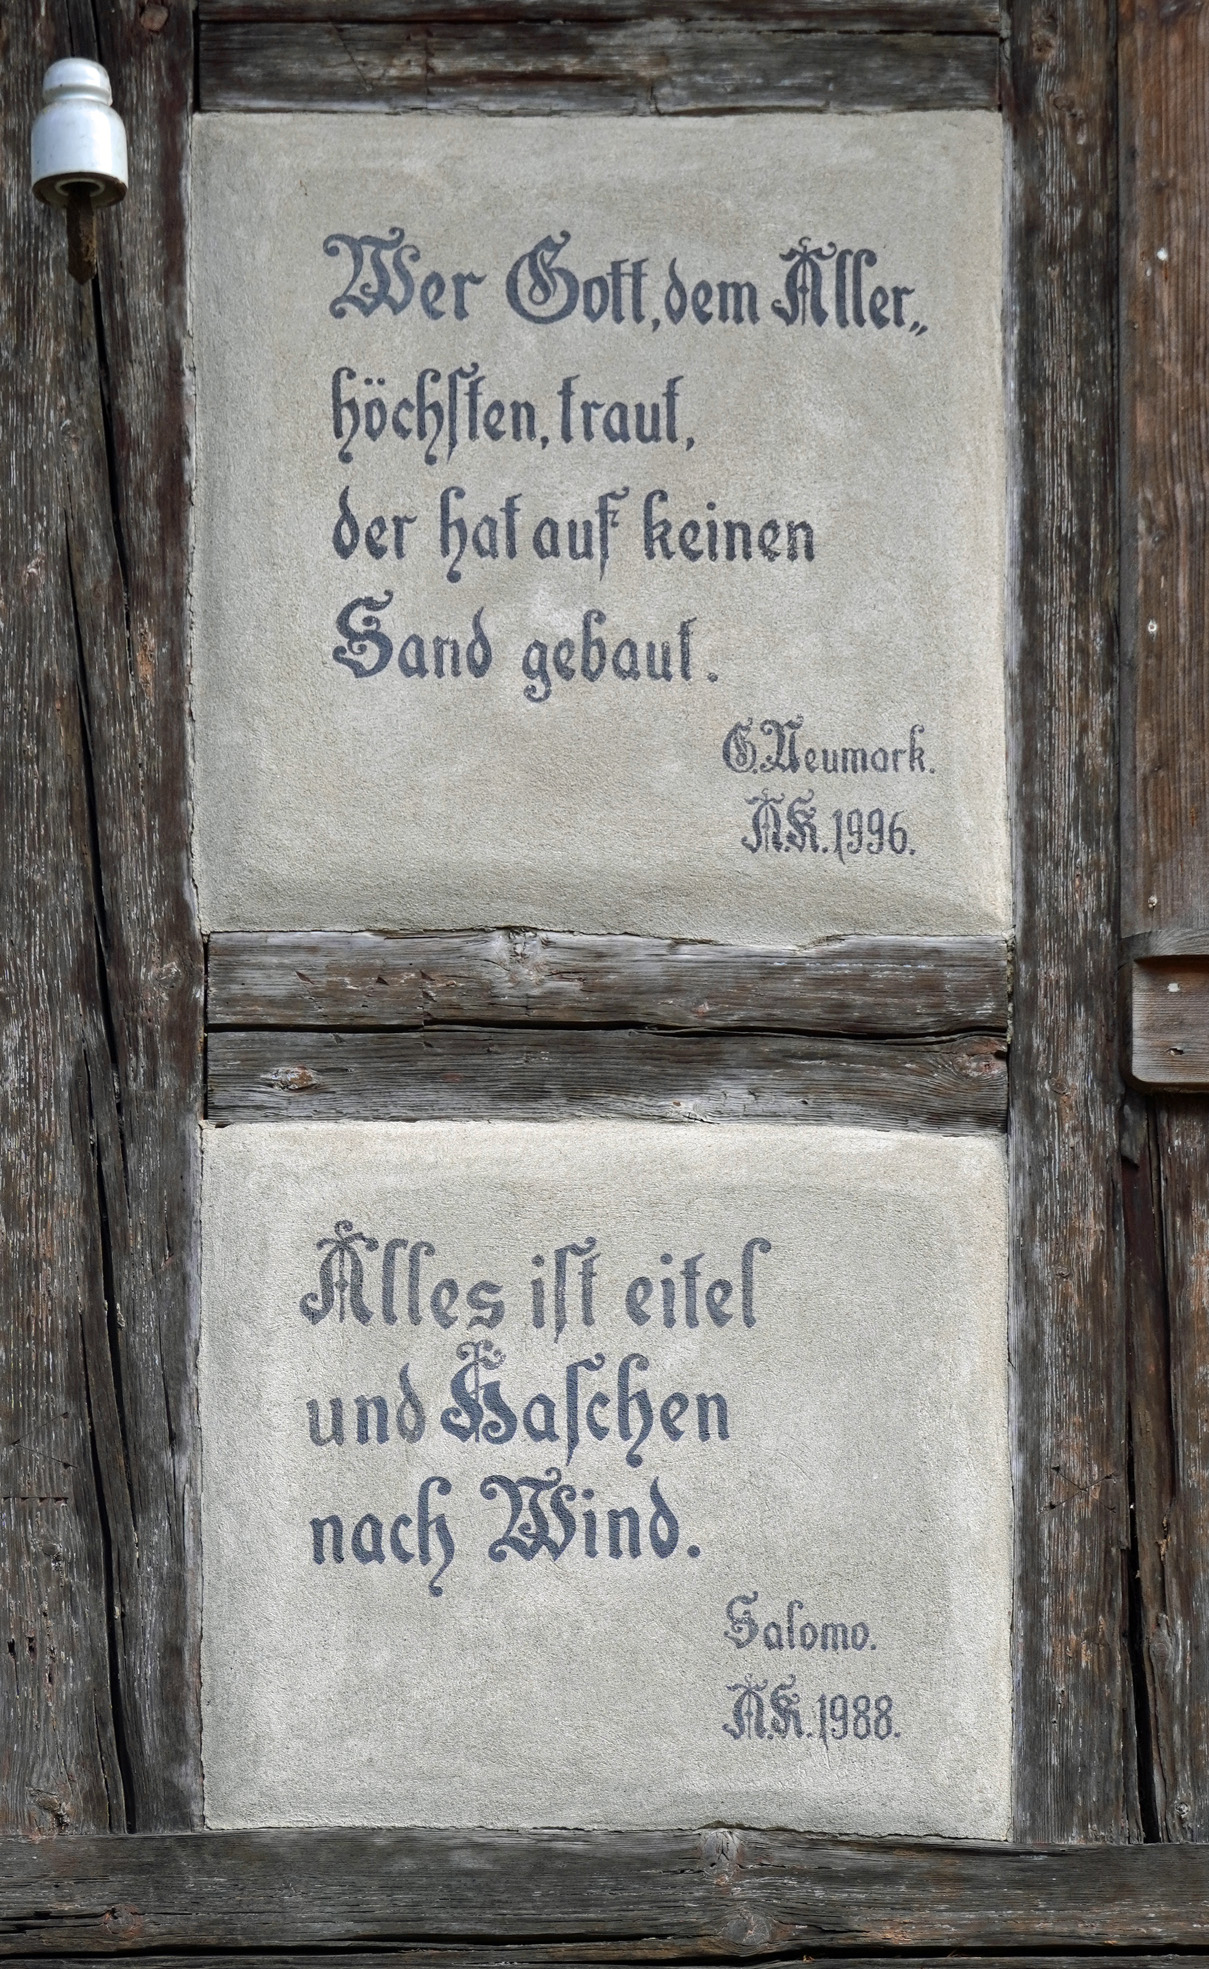 Wer Gott, dem Aller„
höchsten, traut,
der hat auf keinen
Sand gebaut.
G. Neumark.
A.K. 1996.
Alles ist eitel
und Haschen
nach Wind.
Salomo.
A.K. 1988.